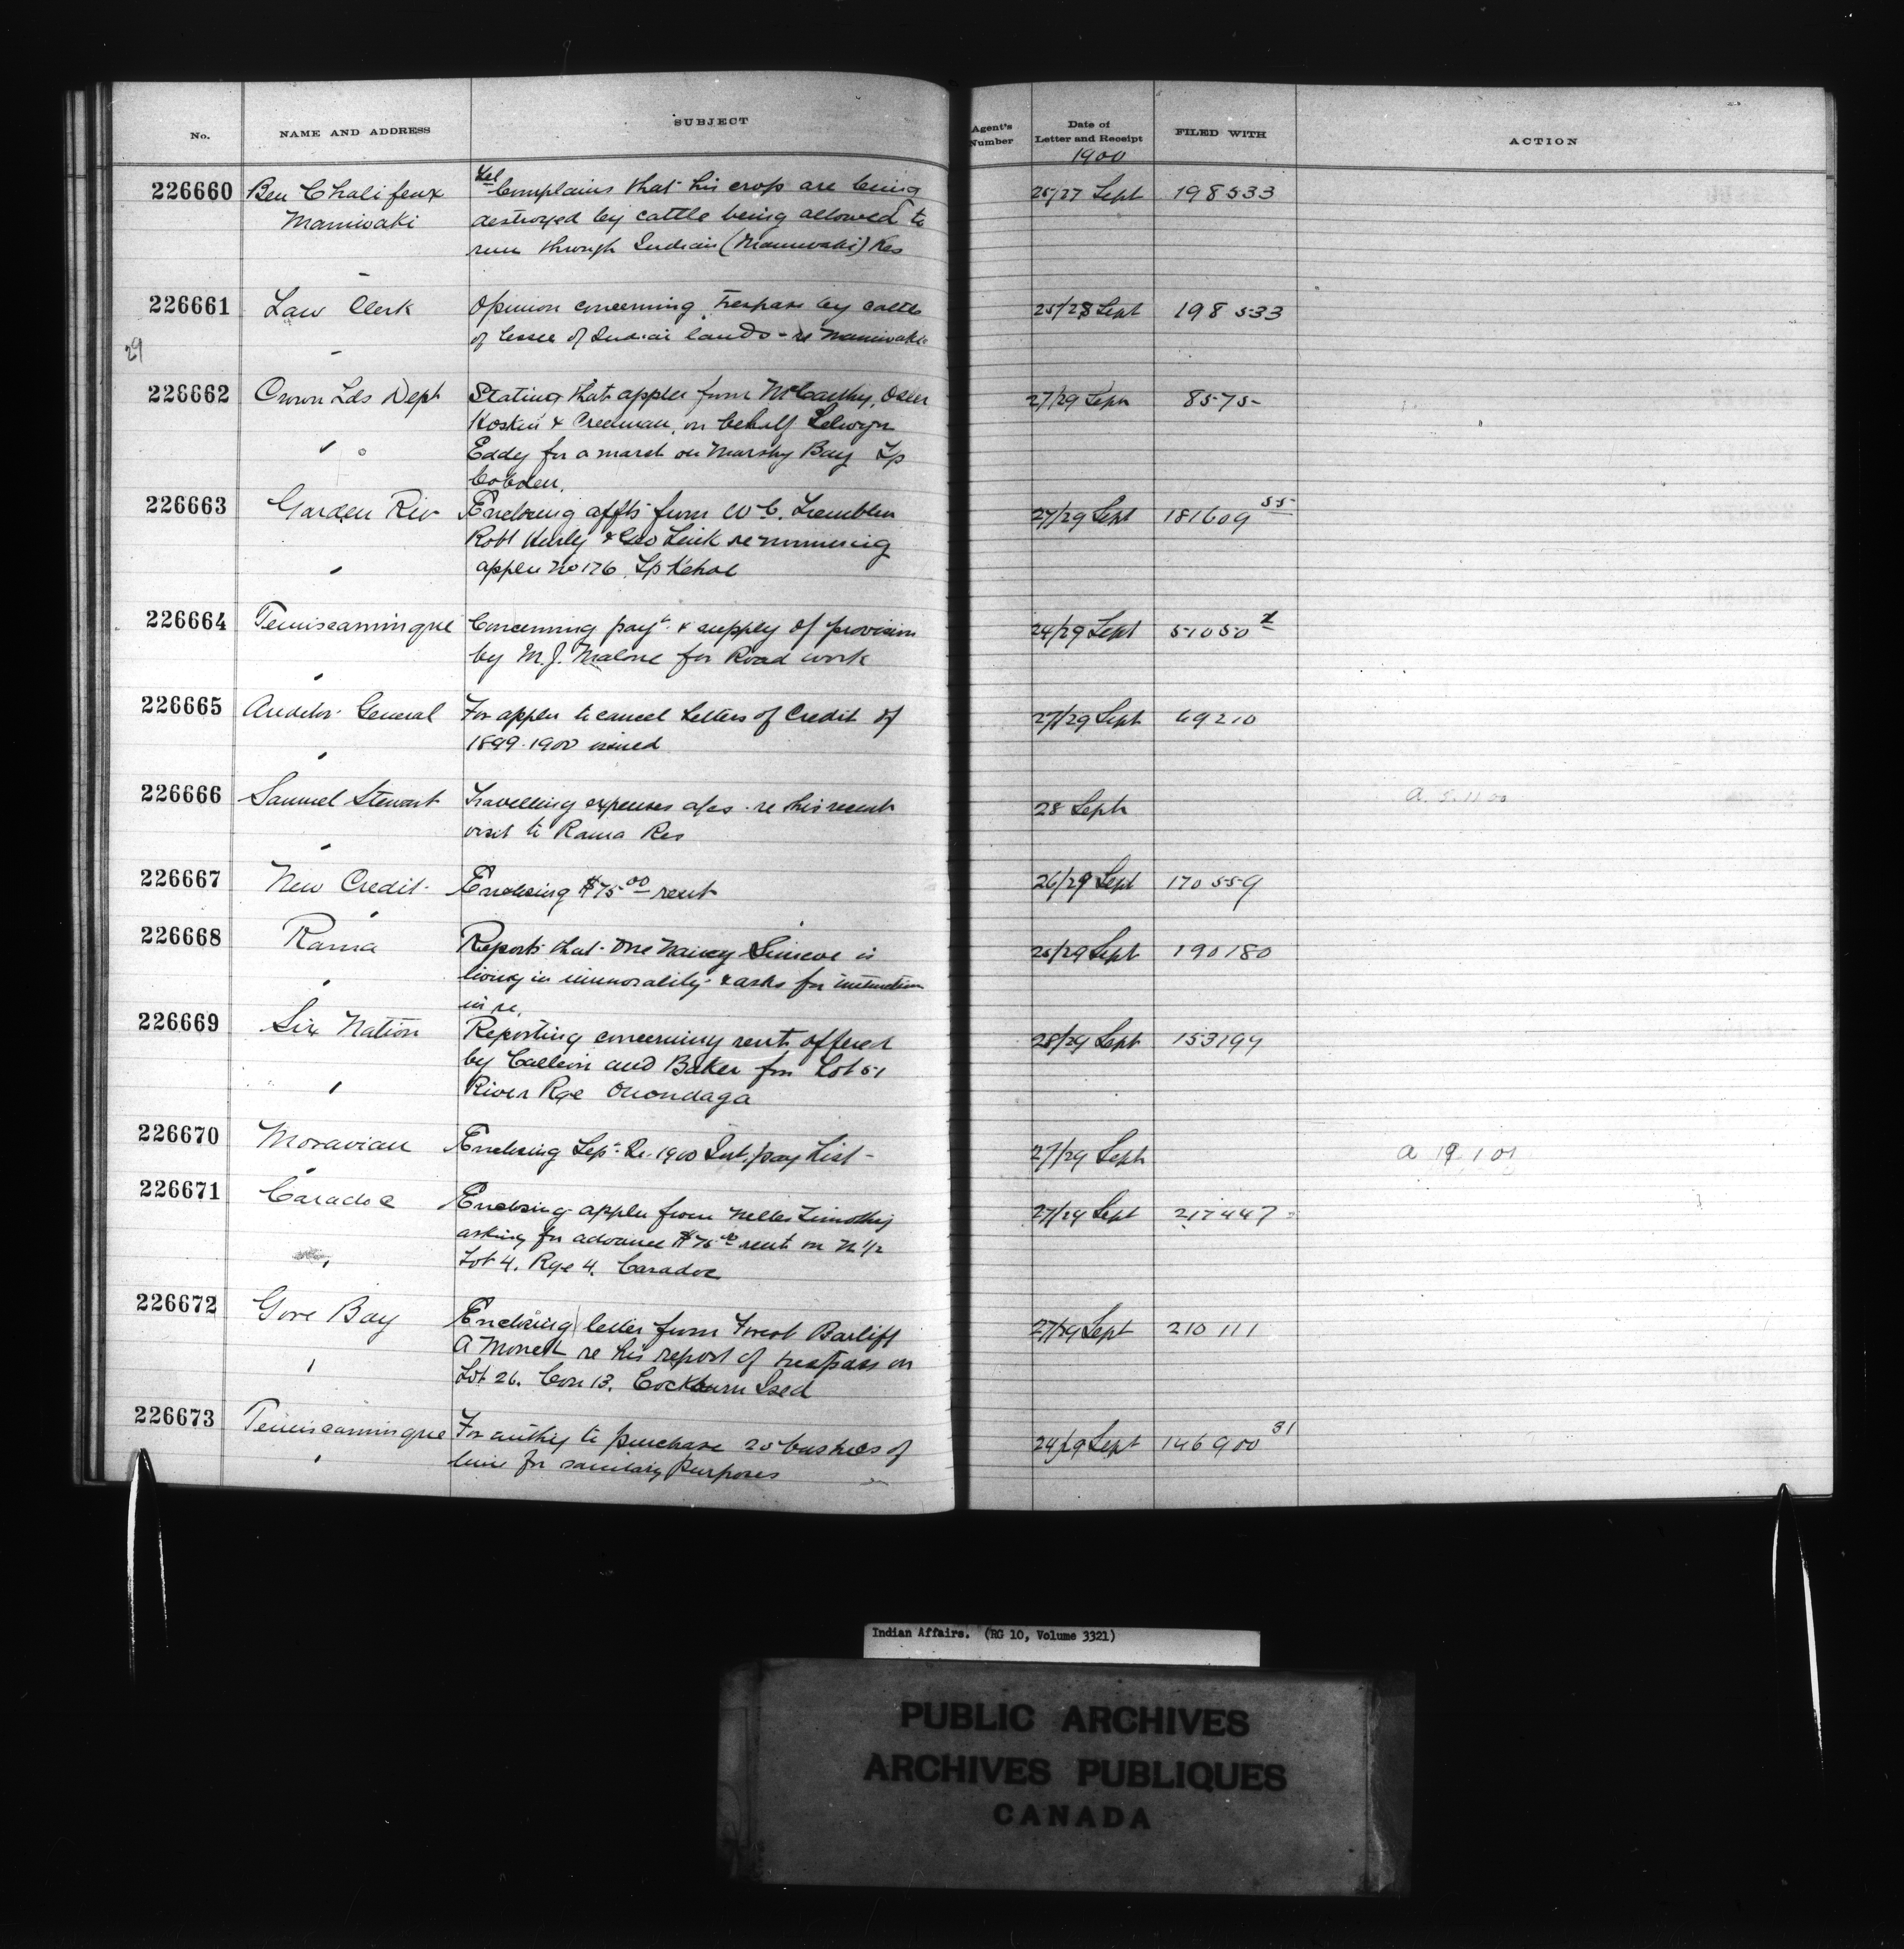 No. NAME AND ADDRESS SUBJECT Agent's Number Date of Letter and Receipt FILED WITH ACTION
1900
226660 Ben Chalifeux Tel Complains that his crop are being 25/27 Sept 198533
Maniwaki destroyed by cattle being allowed to
run through Indian (Maniwaki) Res
226661 Law Clerk Opinion concerning trespass by cattle 25/28 Sept 198533
of lessee of Indian lands - re Maniwaki
29
226662 Crown Lds Dept Stating that applen from McCarthy, Osler 27/29 Septr 8575
Hoskin & Creelman, on behalf Selwyn
Eddy for a marsh on Marshy Bay Tp
Cobden.
226663 Garden Riv Enclosing affts from W C. 27/29 Sept 181609 55
Robt & Geo re
applen No 176. Tp Kehoe
226664 Temiscamingue Concerning payt. & supply of provision 24/29 Sept 51050
by M. J. Malone for Road work
226665 Auditor General For applen to cancel Letters of Credit of 27/29 Sept 69210
1899-1900 issued
226666 Samuel Stewart Travelling expenses a/cs. re his recent 28 Septr
visit to Rama Res
226667 New Credit Enclosing $75 00 rent 26/29 Sept 170559
226668 Rama Reports that one Nancy Simcoe is 25/29 Sept 190180
living in immorality & asks for instruction
in re.
226669 Six Nation Reporting concerning rent offered 28/29 Sept 153199
by and Baker for Lot 51
River Rge Onondaga
226670 Moravian Enclosing Sep. Qr. 1900 Int. pay List - 27/29 Septr a 19 1 01
226671 Caradoc Enclosing applen from Nelles Timothy 27/29 Sept 217447
asking for advance $75 00 rent on N 1/2
Lot 4. Rge 4. Caradoc
226672 Gore Bay Enclosing letter from Forest Bailiff 27/29 Sept 210111
A re his report of trespass on
Lot 26. Con 13. Cockburn Isld
226673 Temiscamingue For authty to purchase 20 bushels of 24/29 Sept 146900 31
lime for sanitary purposes
Indian Affairs. (RG 10, Volume 3321)
PUBLIC ARCHIVES
ARCHIVES PUBLIQUES
CANADA